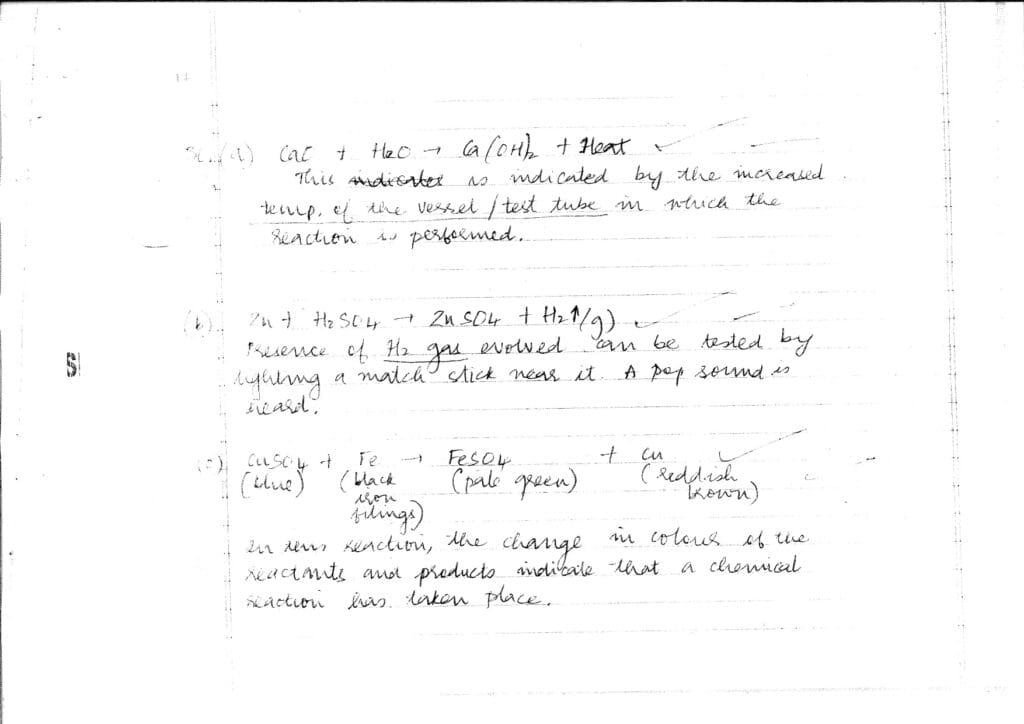 (a) CaC + H2O → Ca(OH)2 + Heat
This indicates is indicated by the increased
temp. of the vessel / test tube in which the
reaction is performed.
(b) Zn + H2SO4 → ZnSO4 + H2↑(g)
Presence of H2 gas evolved can be tested by
lighting a match stick near it. A pop sound is
heard.
(c) CuSO4 + Fe → FeSO4 + Cu
(blue) (black (pale green) (reddish
iron brown)
filings)
In this reaction, the change in colour of the
reactants and products indicate that a chemical
reaction has taken place.